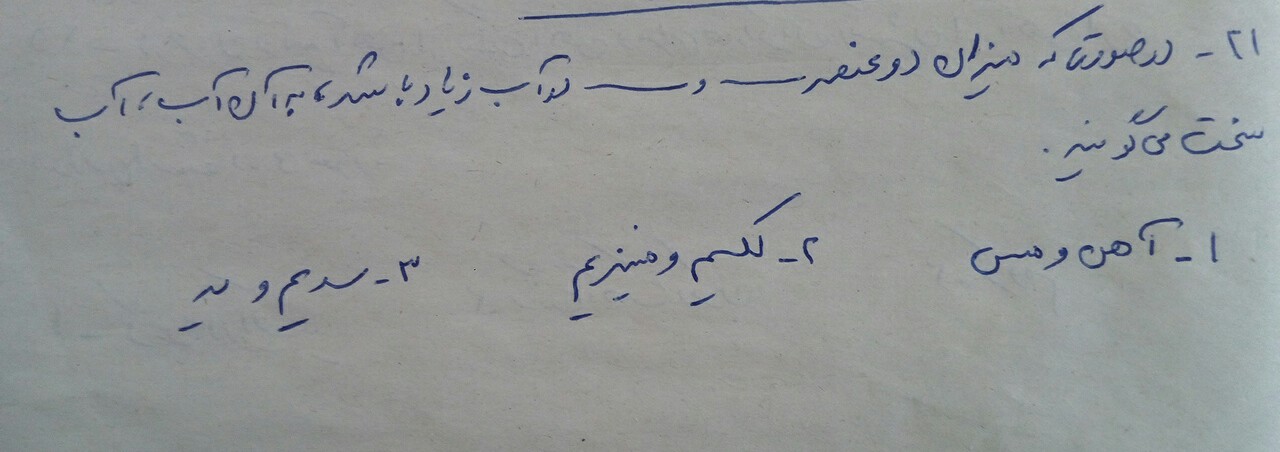 ۲۱- در صورتی که میزان دو عنصر ــــ و ــــ در آب زیاد باشد، به آن آب، آب
سخت می گویند.
۱- آهن و مس ۲- کلسیم و منیزیم ۳- سدیم و ید